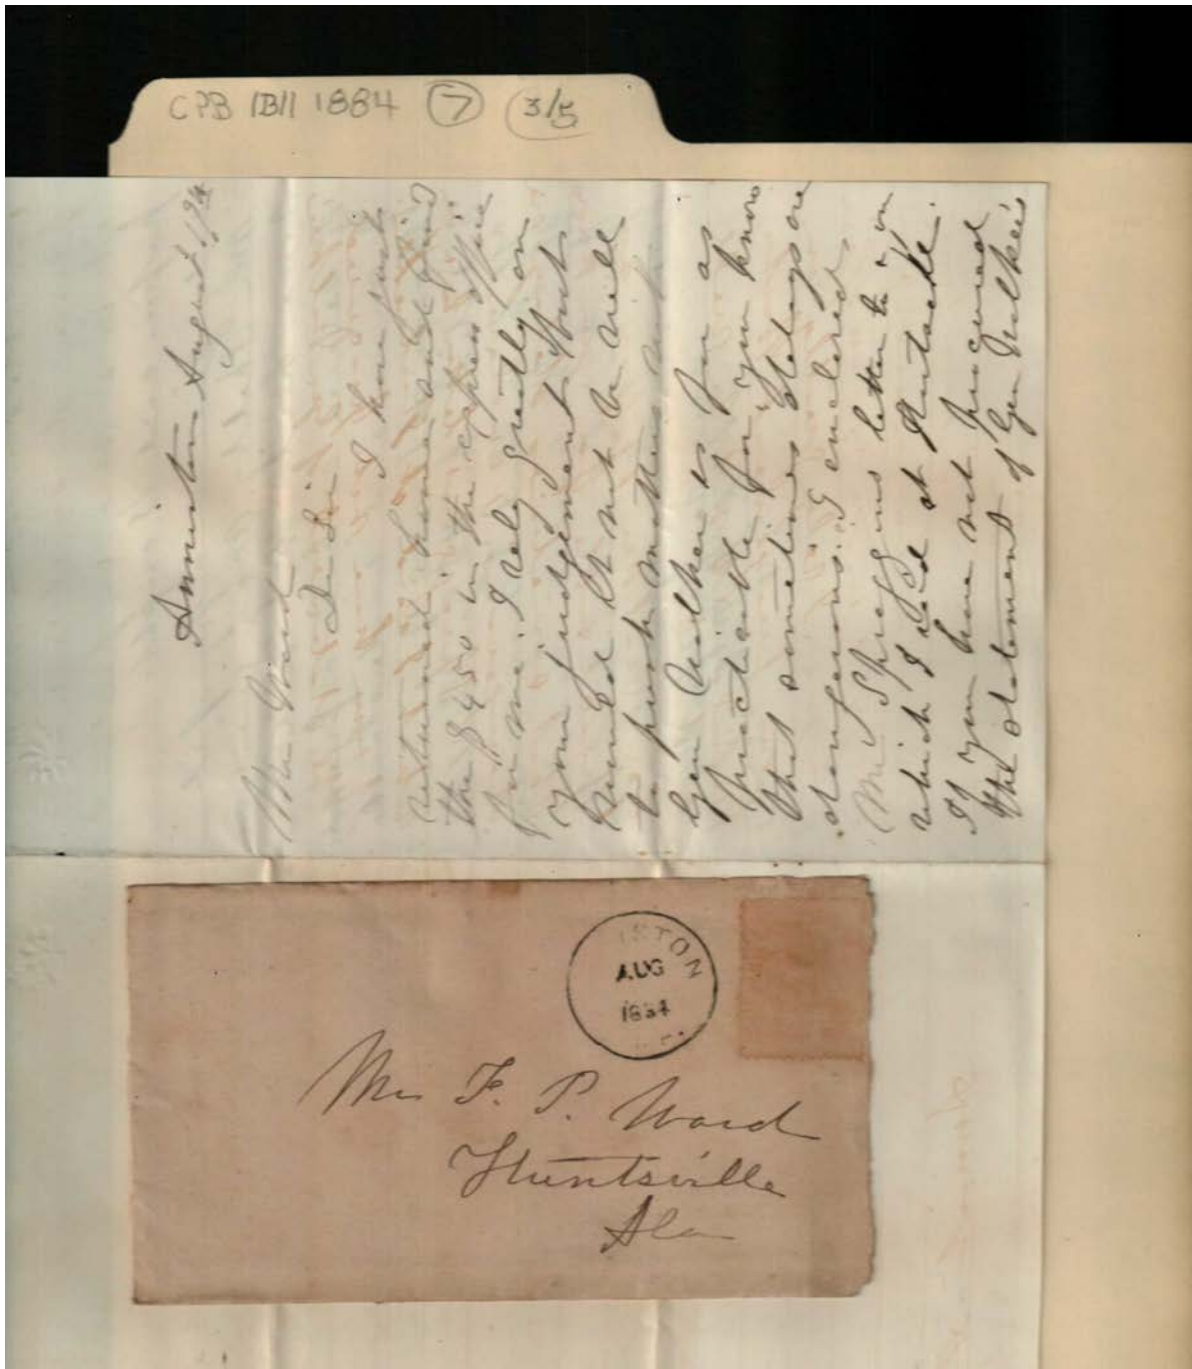 CPB IBII 1884 7 3/5
Anniston August 17th
Mr Ward
Dr Sir
I have just
returned home and find
the $450 in the express office
for me. I rely greatly on
your judgement Wont
it not be well
to push matters
Gen Walker as far as
practicable for you know
that sometimes delays are
dangerous. I enclosed
Mr Spraggins letter to you
which I at Huntsville.
If you have not procured
the statement of Gen Walker's
NISTON
AUG
1884
Mr F. P. Ward
Huntsville
Ala